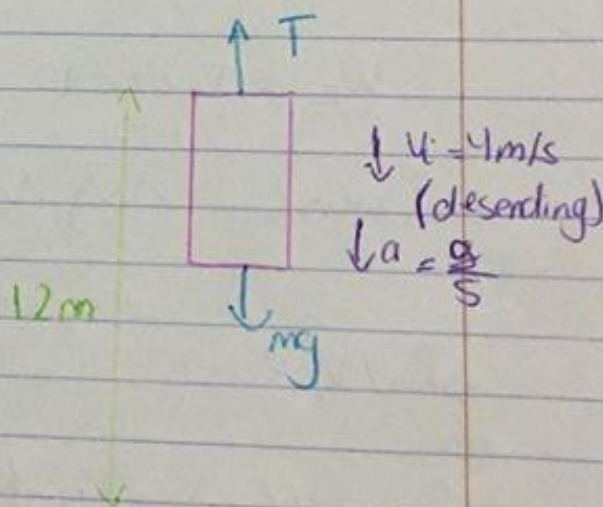 T
u = 4m/s
(desending)
a = g/5
12m
mg